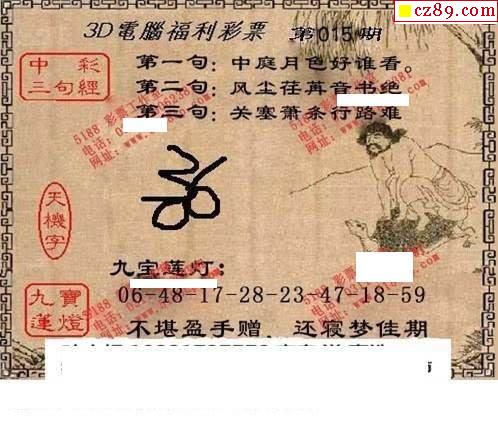 cz89.com
3D電腦福利彩票 第015期
中彩
三句經
第一句：中庭月色好谁看。
第二句：风尘荏苒音书绝
第三句：关塞萧条行路难
5188 彩票工作室
天機字
九宝莲灯：
九寶
蓮燈
06-48-17-28-23-47-18-59
不堪盈手赠，还寝梦佳期